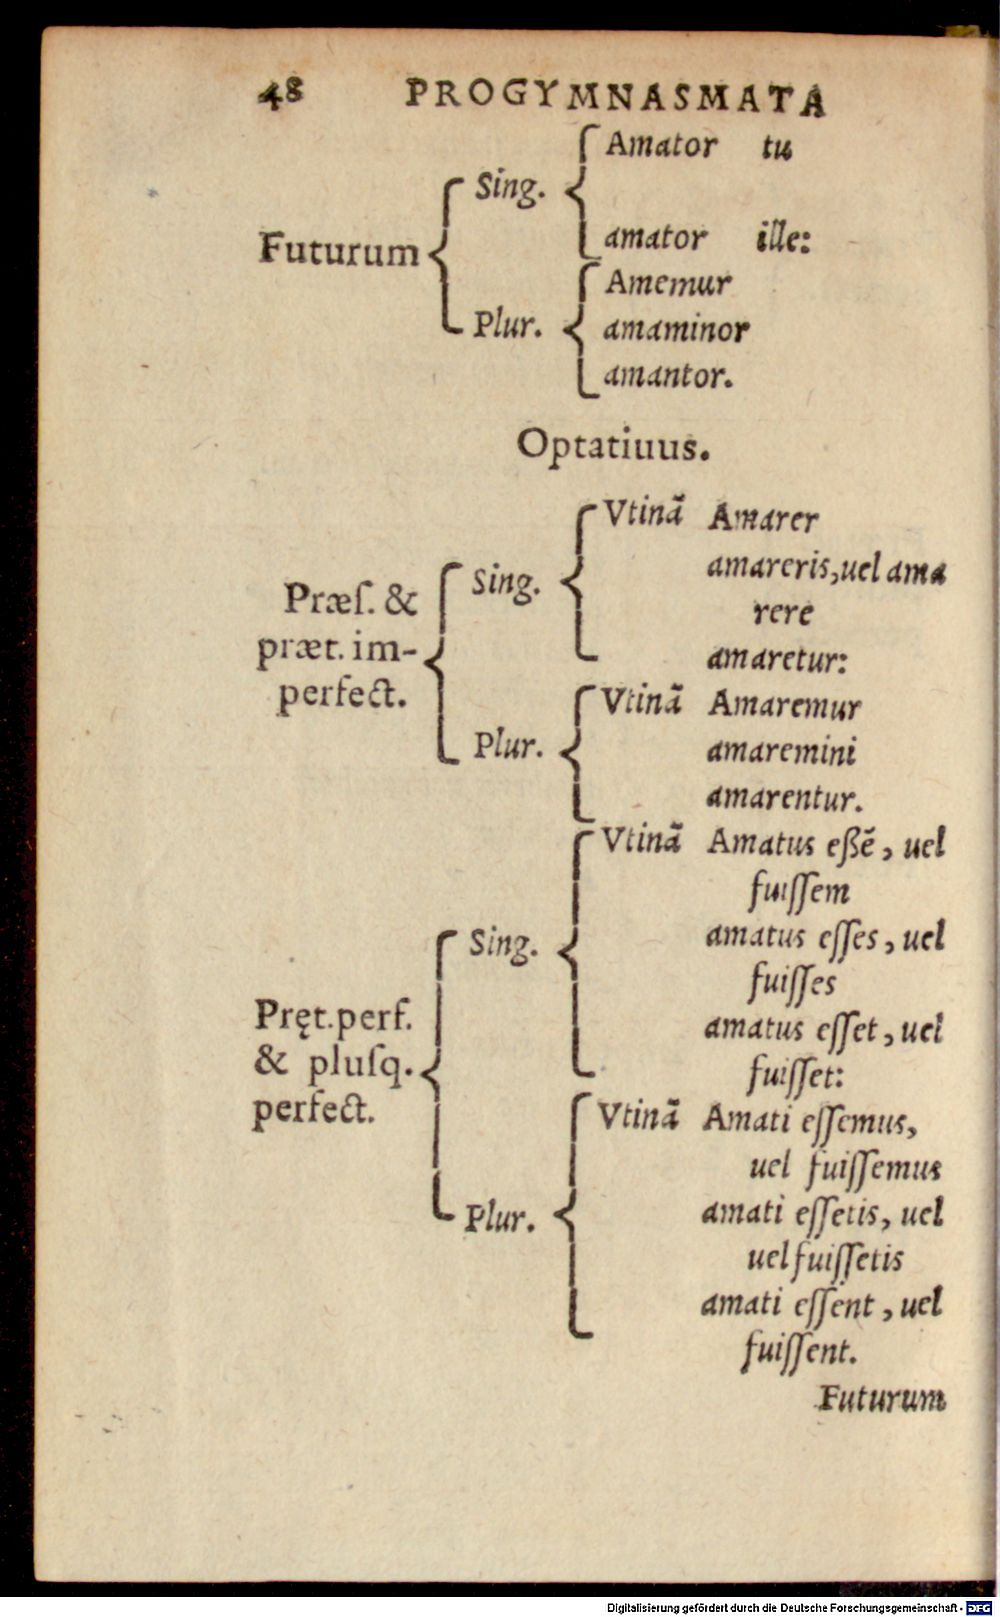 48 PROGYMNASMATA
Amator tu
Sing.
amator ille:
Futurum
Amemur
Plur. amaminor
amantor.
Optatiuus.
Vtinã Amarer
amareris, uel ama
Sing.
rere
Præſ. &
præt. im-
amaretur:
perfect.
Vtinã Amaremur
Plur. amaremini
amarentur.
Vtinã Amatus eßẽ, uel
fuiſſem
Sing. amatus eſſes, uel
fuiſſes
Pręt. perf.
amatus eſſet, uel
& pluſq.
fuiſſet:
perfect.
Vtinã Amati eſſemus,
uel fuiſſemus
Plur. amati eſſetis, uel
uel fuiſſetis
amati eſſent, uel
fuiſſent.
Futurum
Digitalisierung gefördert durch die Deutsche Forschungsgemeinschaft - DFG